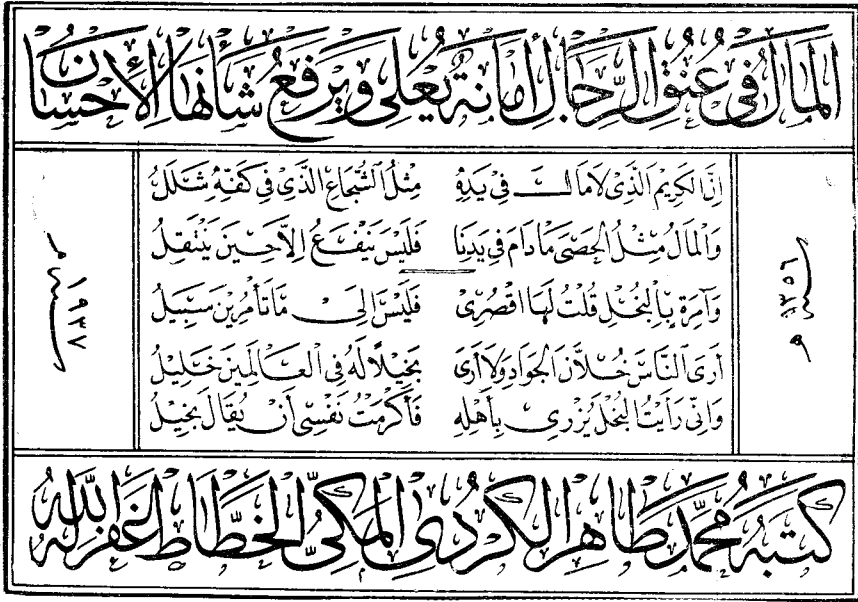 المَالُ فِي عُنُقِ الرِّجَالِ أَمَانَةٌ يُعْلِي وَيَرْفَعُ شَأْنَهَا الإِحْسَانُ
سنة ١٣٥٦ هـ
إِنَّ الكَرِيمَ الَّذِي لَا مَالَ فِي يَدِهِ مِثْلُ الشُّجَاعِ الَّذِي فِي كَفِّهِ شَلَلُ
وَالمَالُ مِثْلُ الحَصَى مَا دَامَ فِي يَدِنَا فَلَيْسَ يَنْفَعُ إِلَّا حِينَ يَنْتَقِلُ
وَآمِرَةٍ بِالبُخْلِ قُلْتُ لَهَا اقْصُرِي فَلَيْسَ إِلَى مَا تَأْمُرِينَ سَبِيلُ
أَرَى النَّاسَ خُلَّانَ الجَوَادِ وَلَا أَرَى بَخِيلًا لَهُ فِي العَالَمِينَ خَلِيلُ
وَإِنِّي رَأَيْتُ البُخْلَ يُزْرِي بِأَهْلِهِ فَأَكْرَمْتُ نَفْسِي أَنْ يُقَالَ بَخِيلُ
سنة ١٩٣٧ م
كَتَبَهُ مُحَمَّد طَاهِر الكُرْدِي المَكِّيُّ الخَطَّاط غَفَرَ اللهُ لَهُ